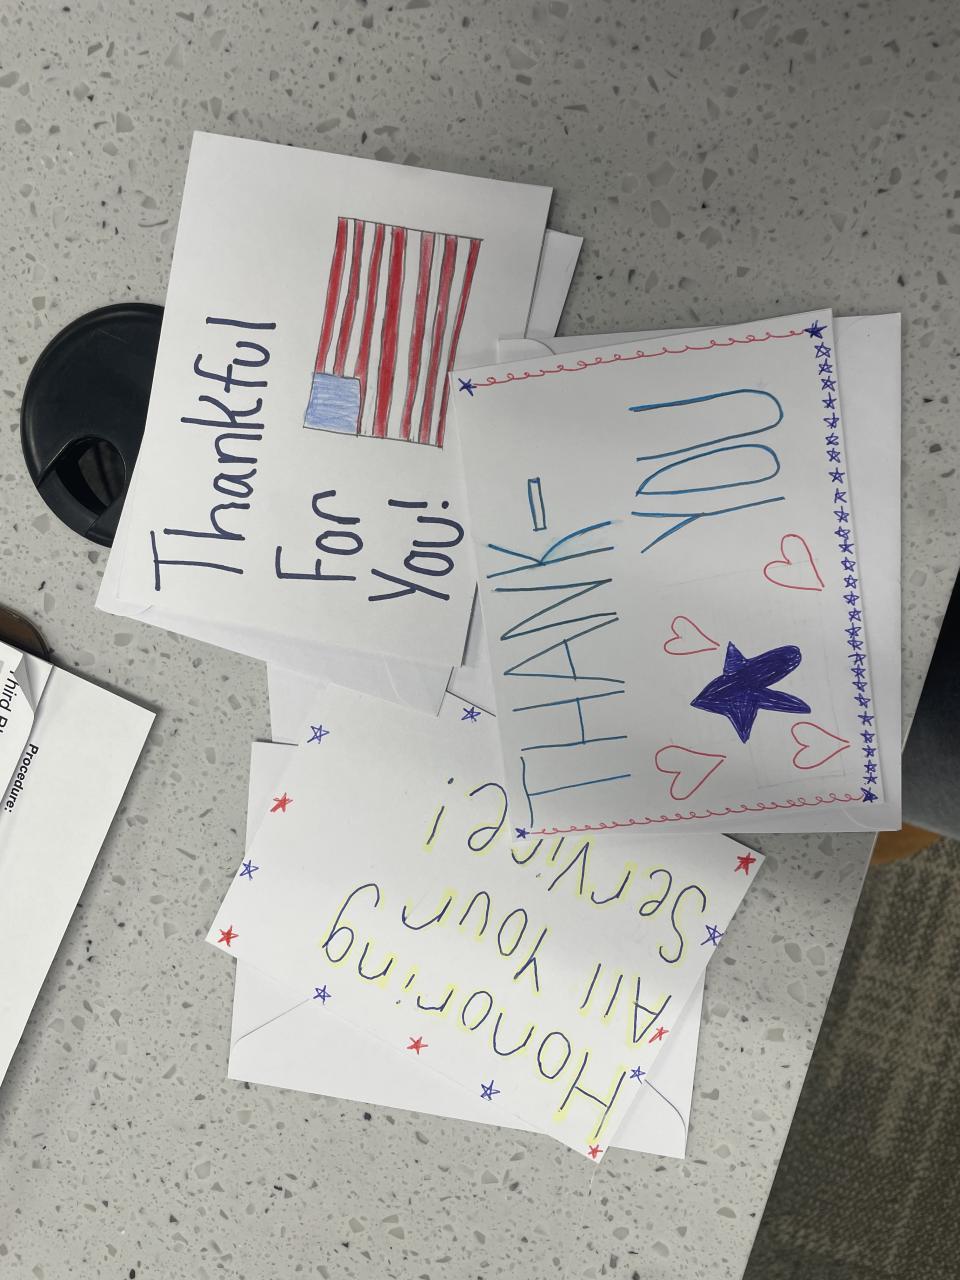 Thankful
For
You!
THANK-
YOU
Honoring
All Your
Service!
Third
Procedure: